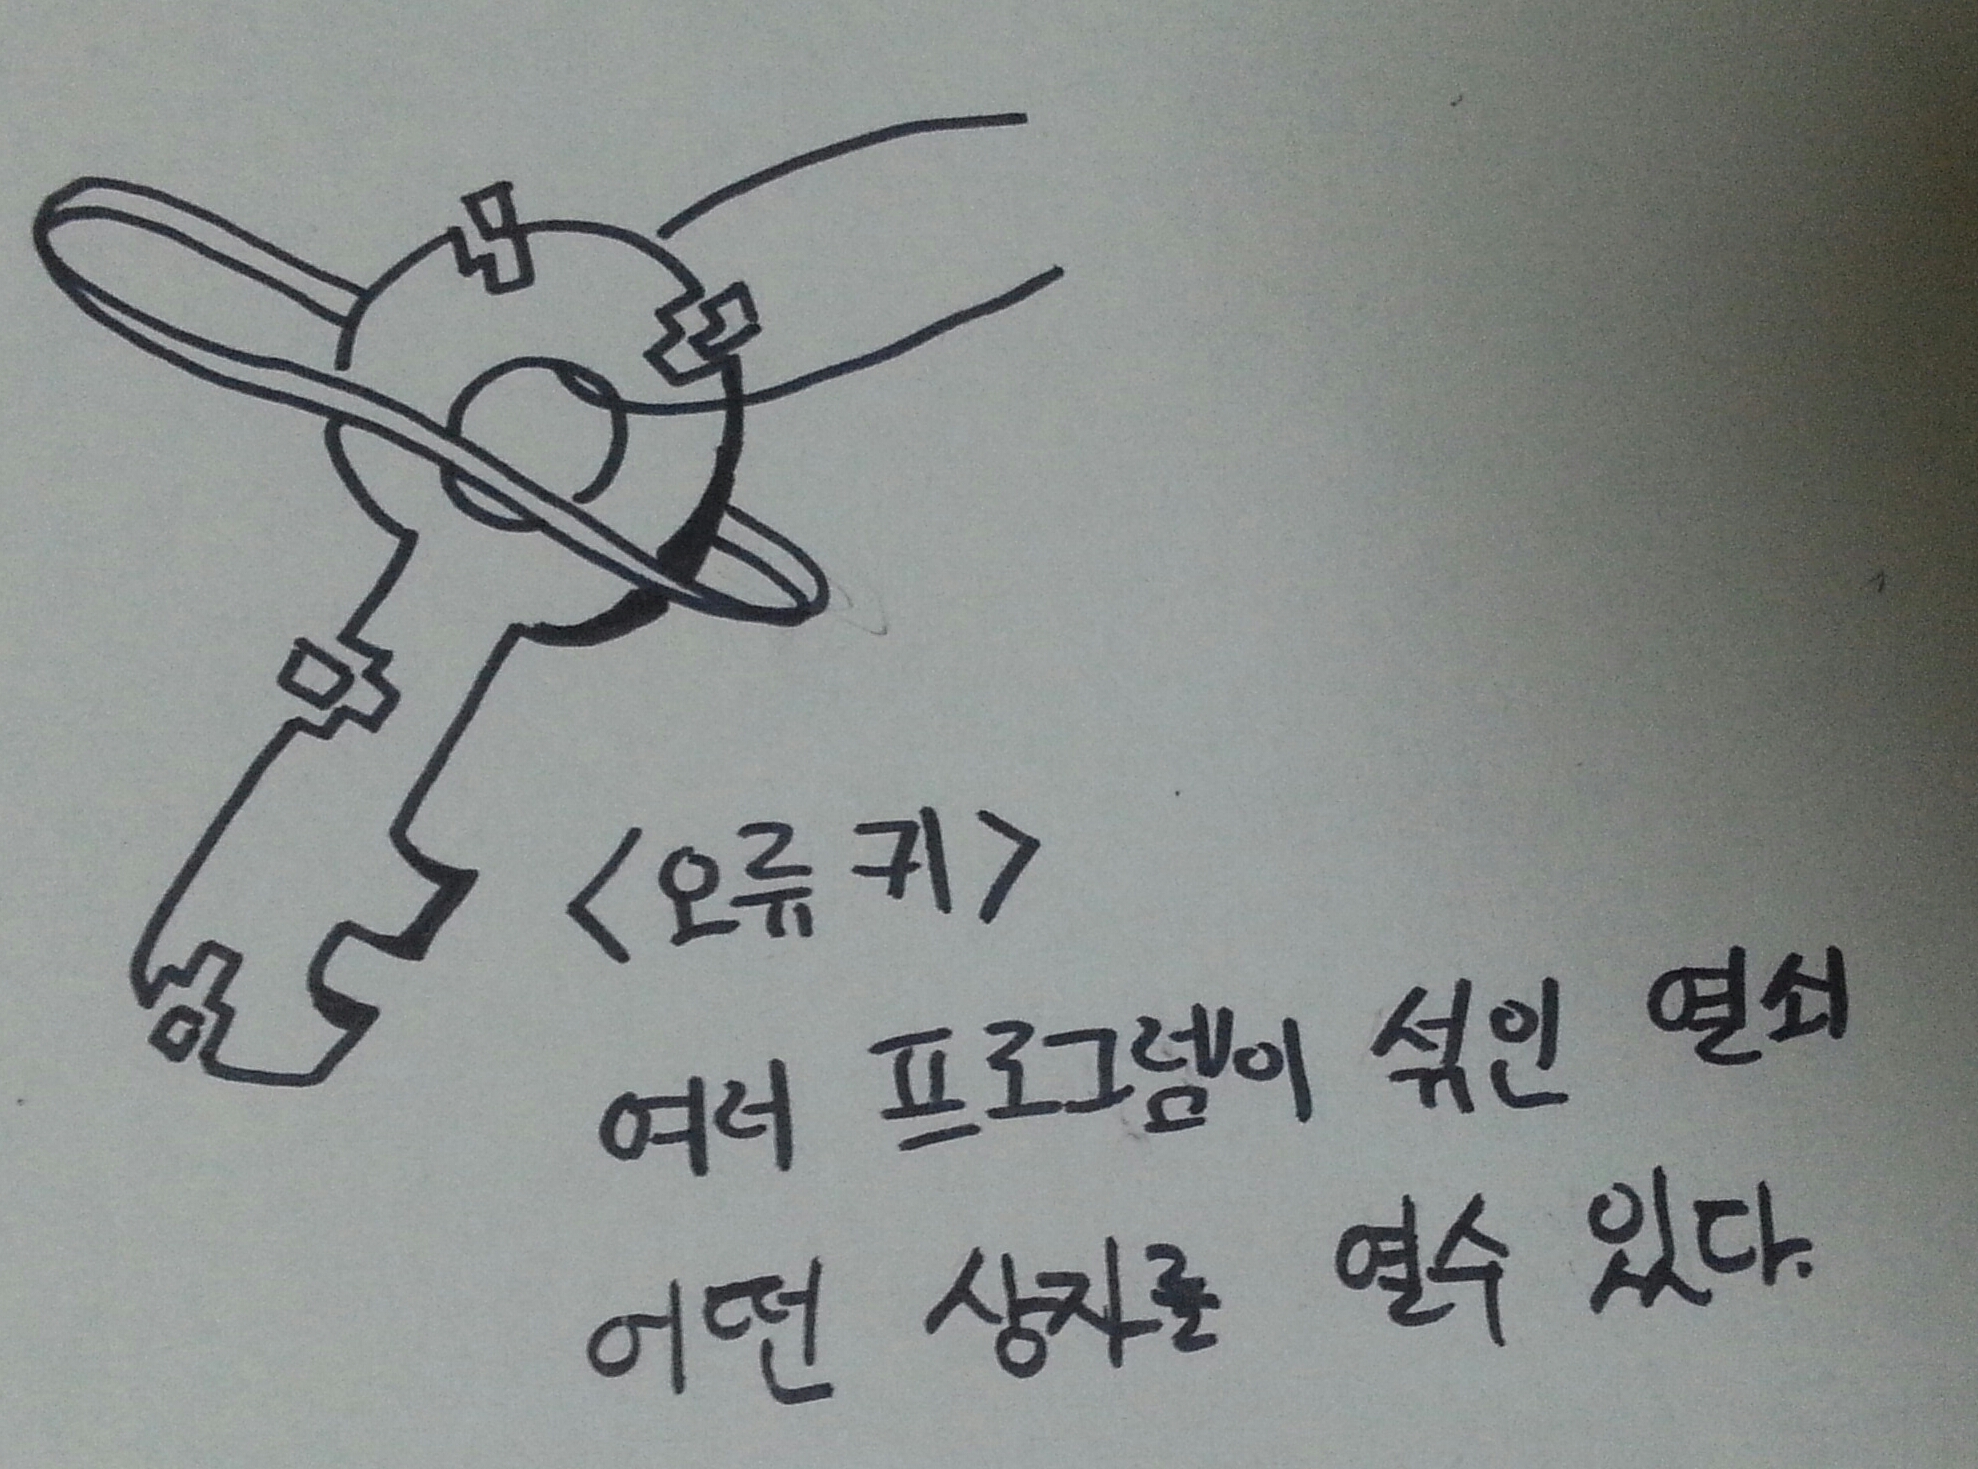 <오류 키>
여러 프로그램이 섞인 열쇠
어떤 상자를 열수 있다.